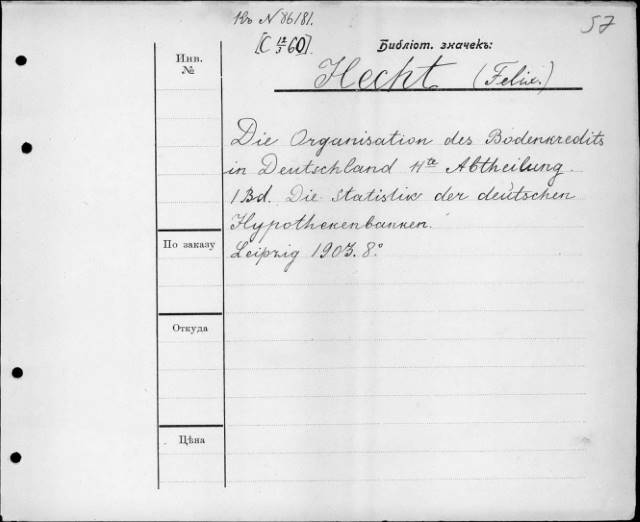 Ко N 86181.
57
[C 12/3 60].
Библіот. значекъ:
Инв.
№
Hecht (Felix.)
Die Organisation des Bodenkredits
in Deutschland IIte Abtheilung.
1 Bd. Die Statistik der deutschen
Hypothekenbanken.
По заказу
Leipzig 1903. 8.°
Откуда
Цѣна